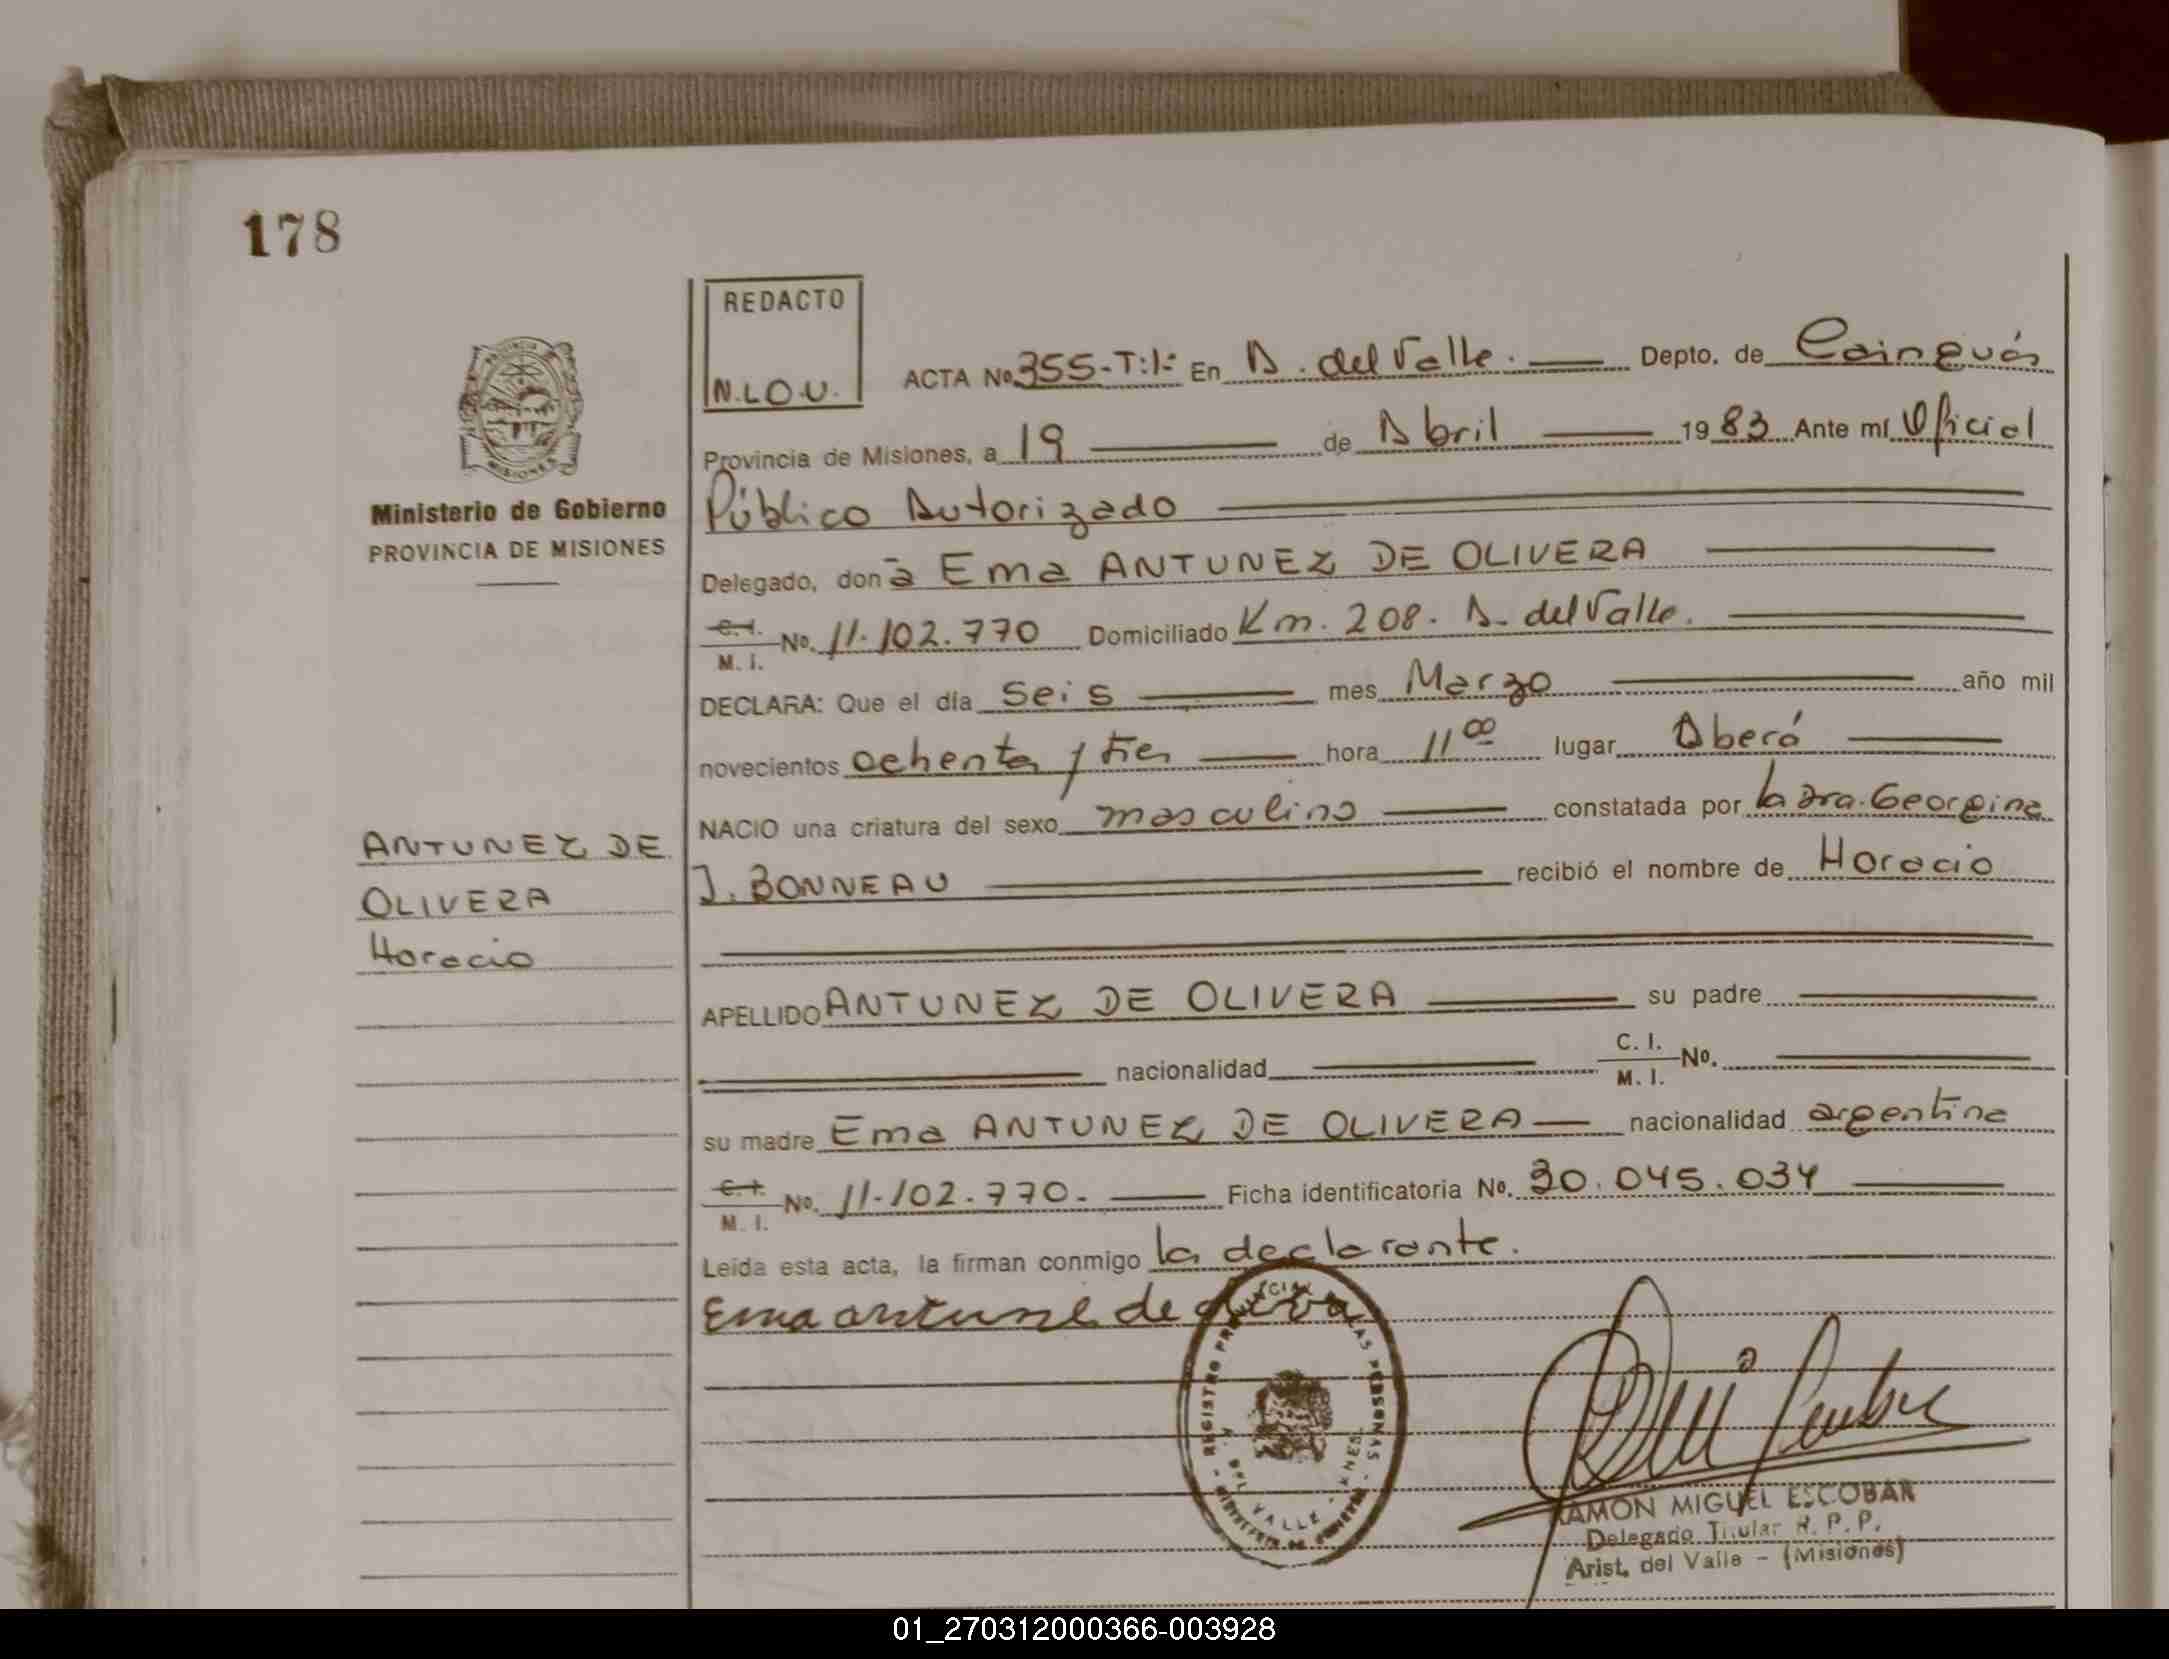 178
REDACTO
N.L.O.U.
ACTA No. 355-T:1:- En A. del Valle. Depto. de Cainguás
Provincia de Misiones, a 19 de Abril 1983 Ante mí Oficial
Público Autorizado
Delegado, don a Ema ANTUNEZ DE OLIVERA
C.I. M. I. No. 11.102.770 Domiciliado Km. 208. A. del Valle.
DECLARA: Que el día seis mes Marzo año mil
novecientos ochenta y tres hora 11 00 lugar Oberá
NACIO una criatura del sexo masculino constatada por la Dra. Georgina
J. BONNEAU recibió el nombre de Horacio
APELLIDO ANTUNEZ DE OLIVERA su padre
nacionalidad C. I. M. I. No.
su madre Ema ANTUNEZ DE OLIVERA nacionalidad argentina
C.I. M. I. No. 11.102.770. Ficha identificatoria No. 30.045.034
Leída esta acta, la firman conmigo la declarante.
Ema antunes de
PROVINCIA
MISIONES
Ministerio de Gobierno
PROVINCIA DE MISIONES
ANTUNEZ DE
OLIVERA
Horacio
REGISTRO PROVINCIAL DE LAS PERSONAS
A. DEL VALLE - MNES.
MINISTERIO DE GOBIERNO
RAMON MIGUEL ESCOBAR
Delegado Titular R. P. P.
Arist. del Valle - (Misiones)
01_270312000366-003928